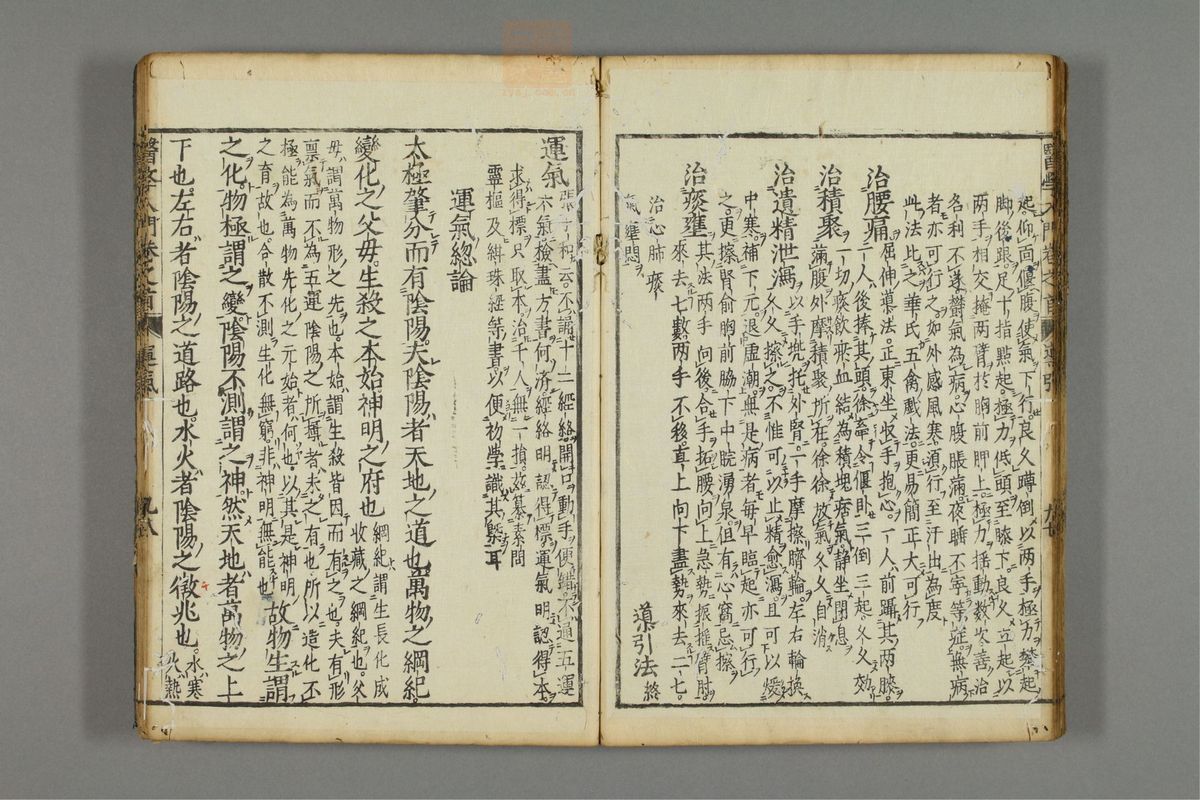 起仰面偃腹使氣下行良久蹲倒以兩手極力攀起
脚後跟足十指點起極力低頭至膝下良久立起以
兩手相交掩兩臂於胸前胛上極力搖動數次善治
各利不遂鬱氣為病心腹脹滿夜睡不寧等症無病
者亦可行之如外感風寒須行至汗出為度
此法比之華氏五禽戲法更易簡正大可行
治腰痛 屈伸導法正東坐收手抱心一人前躡其兩膝
一人後捧其頭徐牽令偃卧三倒三起久久効
治積聚 一切痰飲瘀血結為積塊痞氣靜坐閉息
滿腹外摩積聚所在徐徐放氣久久自消
治遺精泄瀉 以手兜托外腎一手摩擦臍輪左右輪換
久久擦之不惟可以止精愈瀉且可以煖
中寒補下元退虛潮無是病者每早臨起亦可行
之更擦腎俞胸前脇下中脘湧泉但有心窩忌擦
治痰壅 其法兩手向後合手拓腰向上急勢振搖臂肘
來去七數兩手不移直上向下盡勢來去二七
治心肺痰
氣壅悶 導引法終
運氣 張子和云不誦十二經絡開口動手便錯不通五運
六氣檢盡方書何濟經絡明認得標運氣明認得本
求得標只取本治千人無一損茲纂素問
靈樞及緝珠經等書以便初學識其槩耳
運氣總論
太極肇分而有陰陽夫陰陽者天地之道也萬物之綱紀
變化之父母生殺之本始神明之府也 綱紀謂生長化成收藏之綱紀也父
母謂萬物形之先也本始謂生殺皆因而有之也夫有形
稟氣而不為五運陰陽之所攝者未之有也所以造化不
極能為萬物先化之元始者何也以其是神明
之育故也合散不測生化無窮非神明無能也 故物生謂
之化物極謂之變陰陽不測謂之神然天地者萬物之上
下也左右者陰陽之道路也水火者陰陽之徵兆也 水寒火熱
運氣